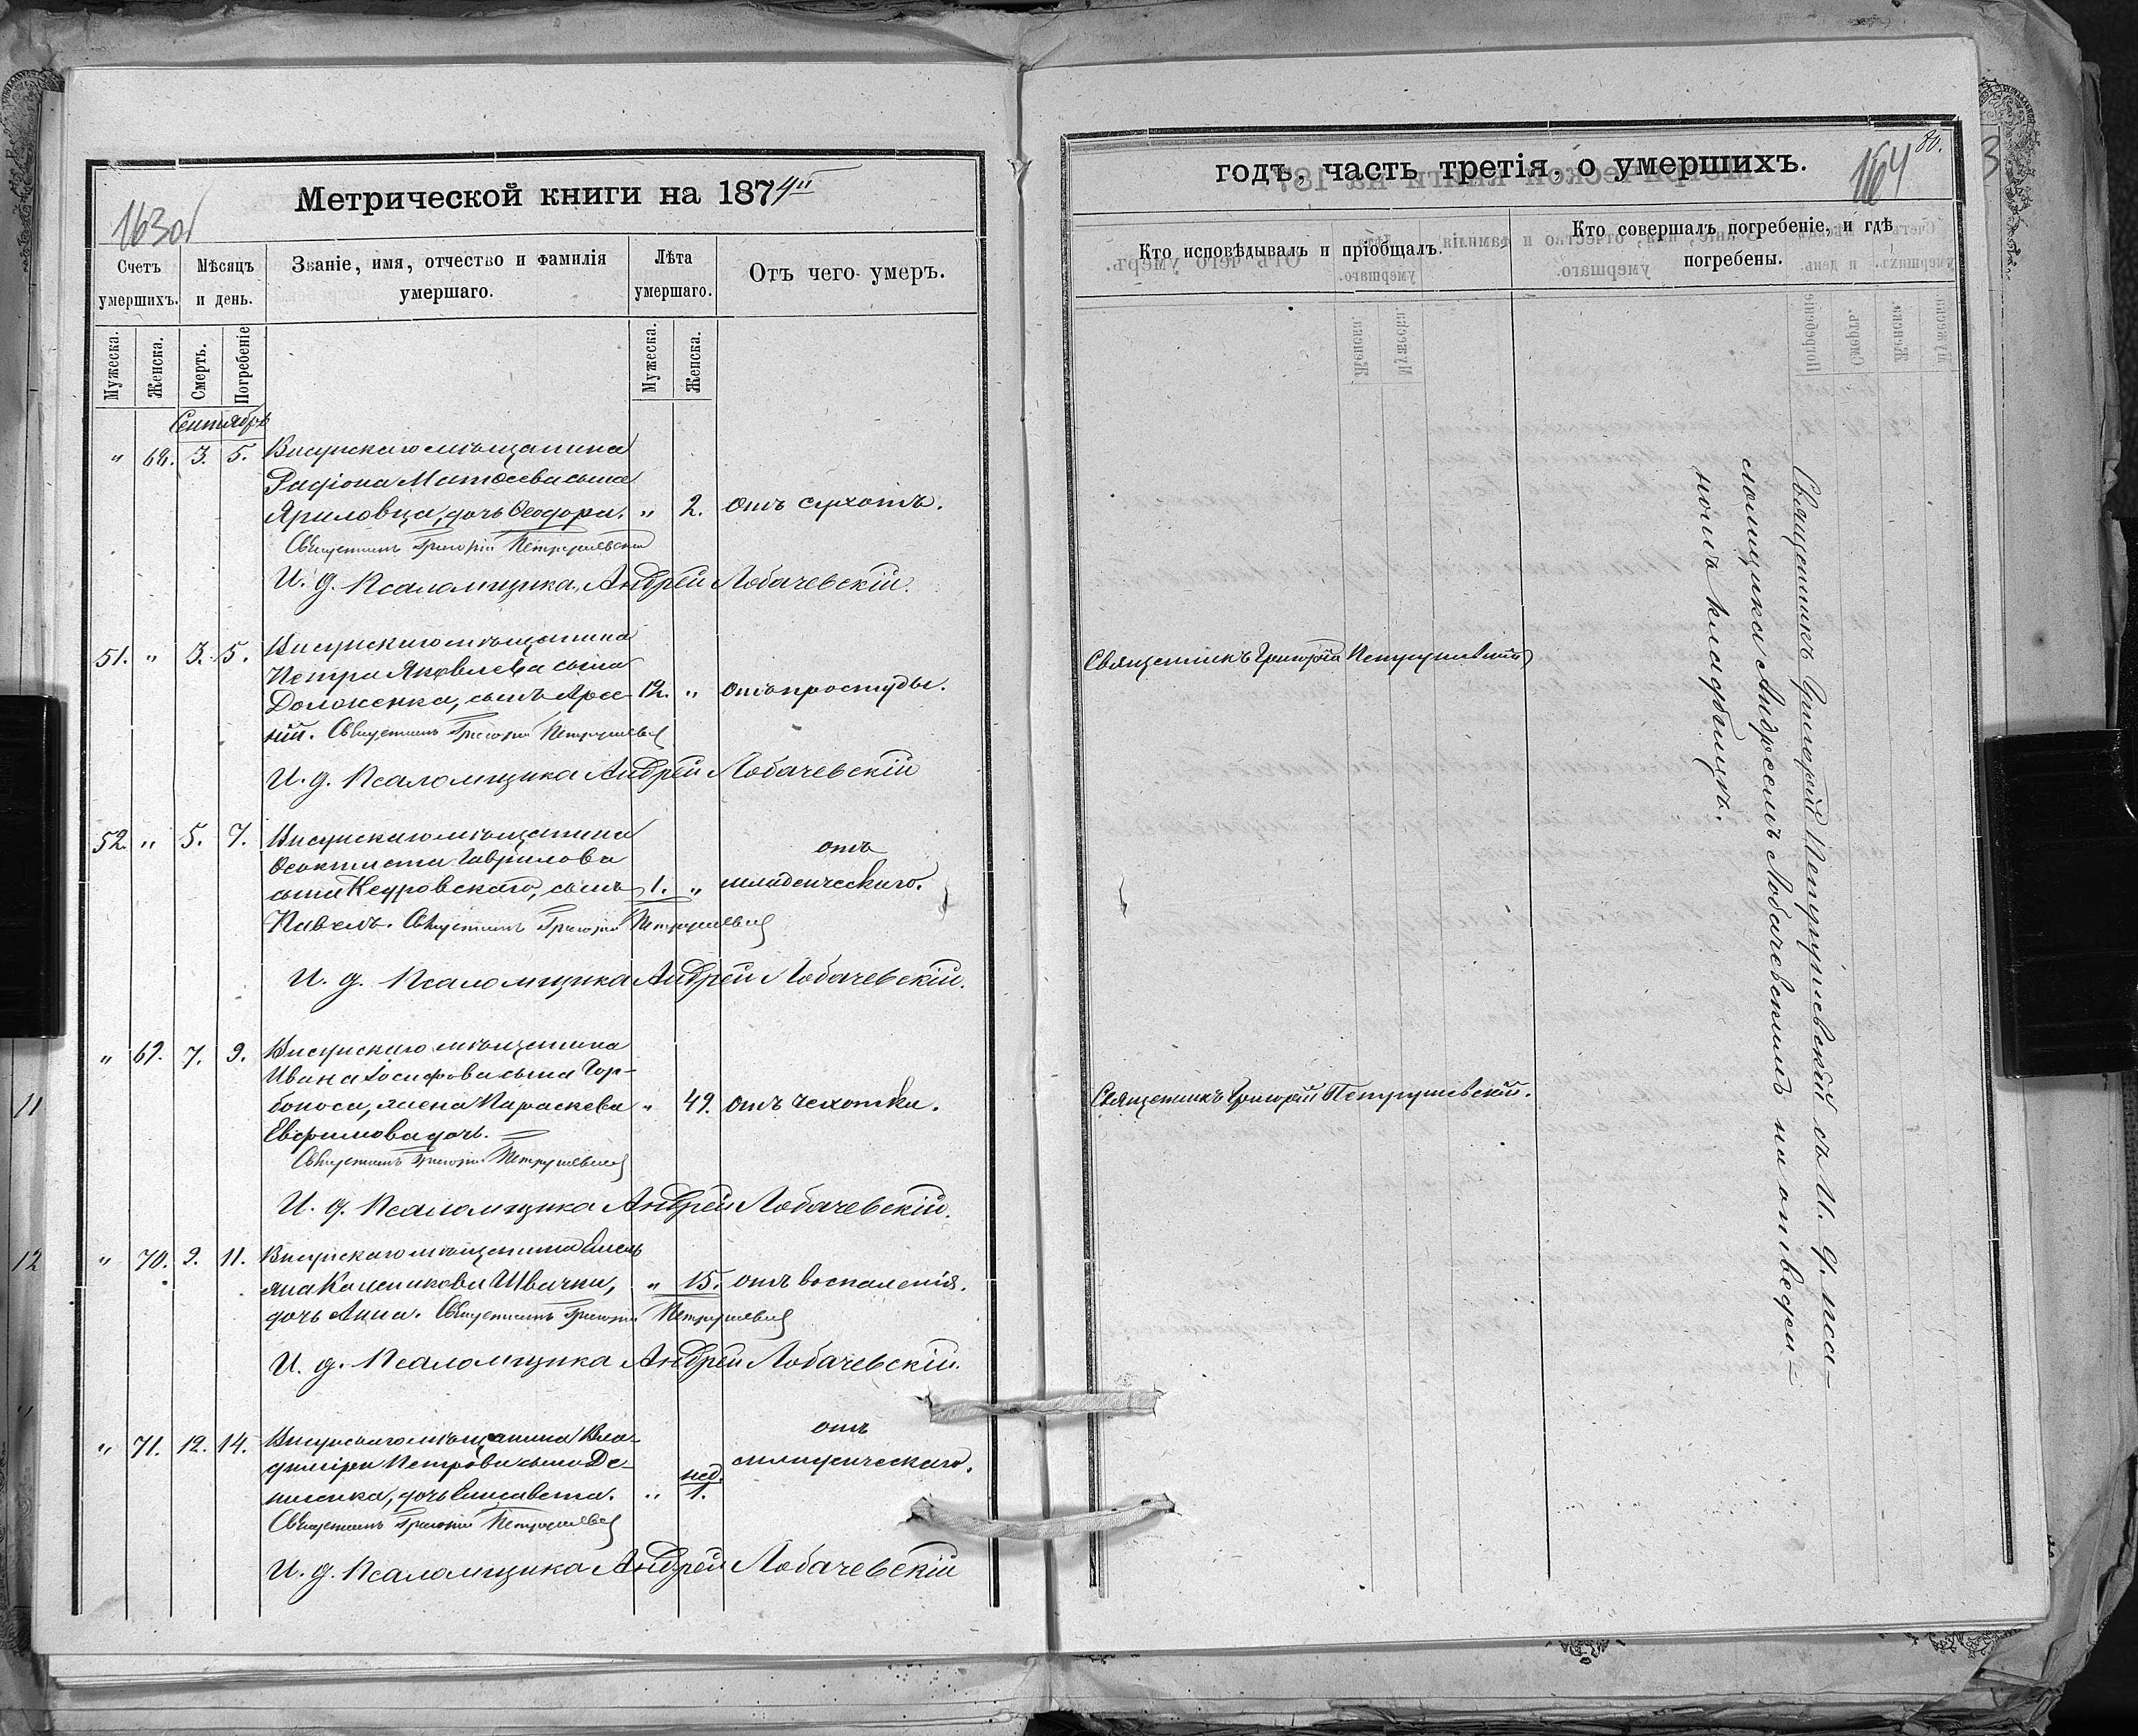 Метрической книги на 1874й
163об
Счетъ умершихъ.
Мѣсяцъ и день.
Званіе, имя, отчество и фамилія умершаго.
Лѣта умершаго.
Отъ чего умеръ.
Мужеска.
Женска.
Смерть.
Погребеніе
Мужеска.
Женска.
Сентябрь
" 68. 3. 5. Висунскаго мѣщанина
Радіона Матѳеева сына
Яриловца, дочь Ѳеодора. " 2. отъ сухотъ.
Священникъ Григорій Петрушевскій
И. д. Псаломщика Андрей Лобачевскій.
51. " 3. 5. Висунскаго мѣщанина
Петра Яковлева сына
Доложенка, сынъ Арсе- 12. " отъ простуды.
ній. Священникъ Григорій Петрушевскій
И. д. Псаломщика Андрей Лобачевскій
52. " 5. 7. Висунскаго мѣщанина
Ѳеоктиста Гаврилова отъ
сына сынъ 1. " младенческаго.
Павелъ. Священникъ Григорій Петрушевскій
И. д. Псаломщика Андрей Лобачевскій.
" 69. 7. 9. Висунскаго мѣщанина
Ивана Іосифова сына Гор-
боноса, жена Параскева " 49. отъ чехотки.
Евфимова дочь.
Священникъ Григорій Петрушевскій
И. д. Псаломщика Андрей Лобачевскій.
" 70. 9. 11. Висунскаго мѣщанина Емель
яна Калинникова Швачки, " 15. отъ воспаленія.
дочь Анна. Священникъ Григорій Петрушевскій
И. д. Псаломщика Андрей Лобачевскій.
" 71. 12. 14. Висунскаго мѣщанина Вла- отъ
диміра Петрова сына Де- младенческаго.
нисенка, дочь Елисавета. " нед. 1.
Священникъ Григорій Петрушевскій
И. д. Псаломщика Андрей Лобачевскій
годъ, часть третія, о умершихъ.
164
80.
Кто исповѣдывалъ и пріобщалъ.
Кто совершалъ погребеніе, и гдѣ погребены.
Священникъ Григорій Петрушевскій
Священникъ Григорій Петрушевскій.
Священникъ Григорій Петрушевскій съ И. д. пса-
ломщика Андреемъ Лобачевскимъ на
номъ кладбищѣ.
11
12
3